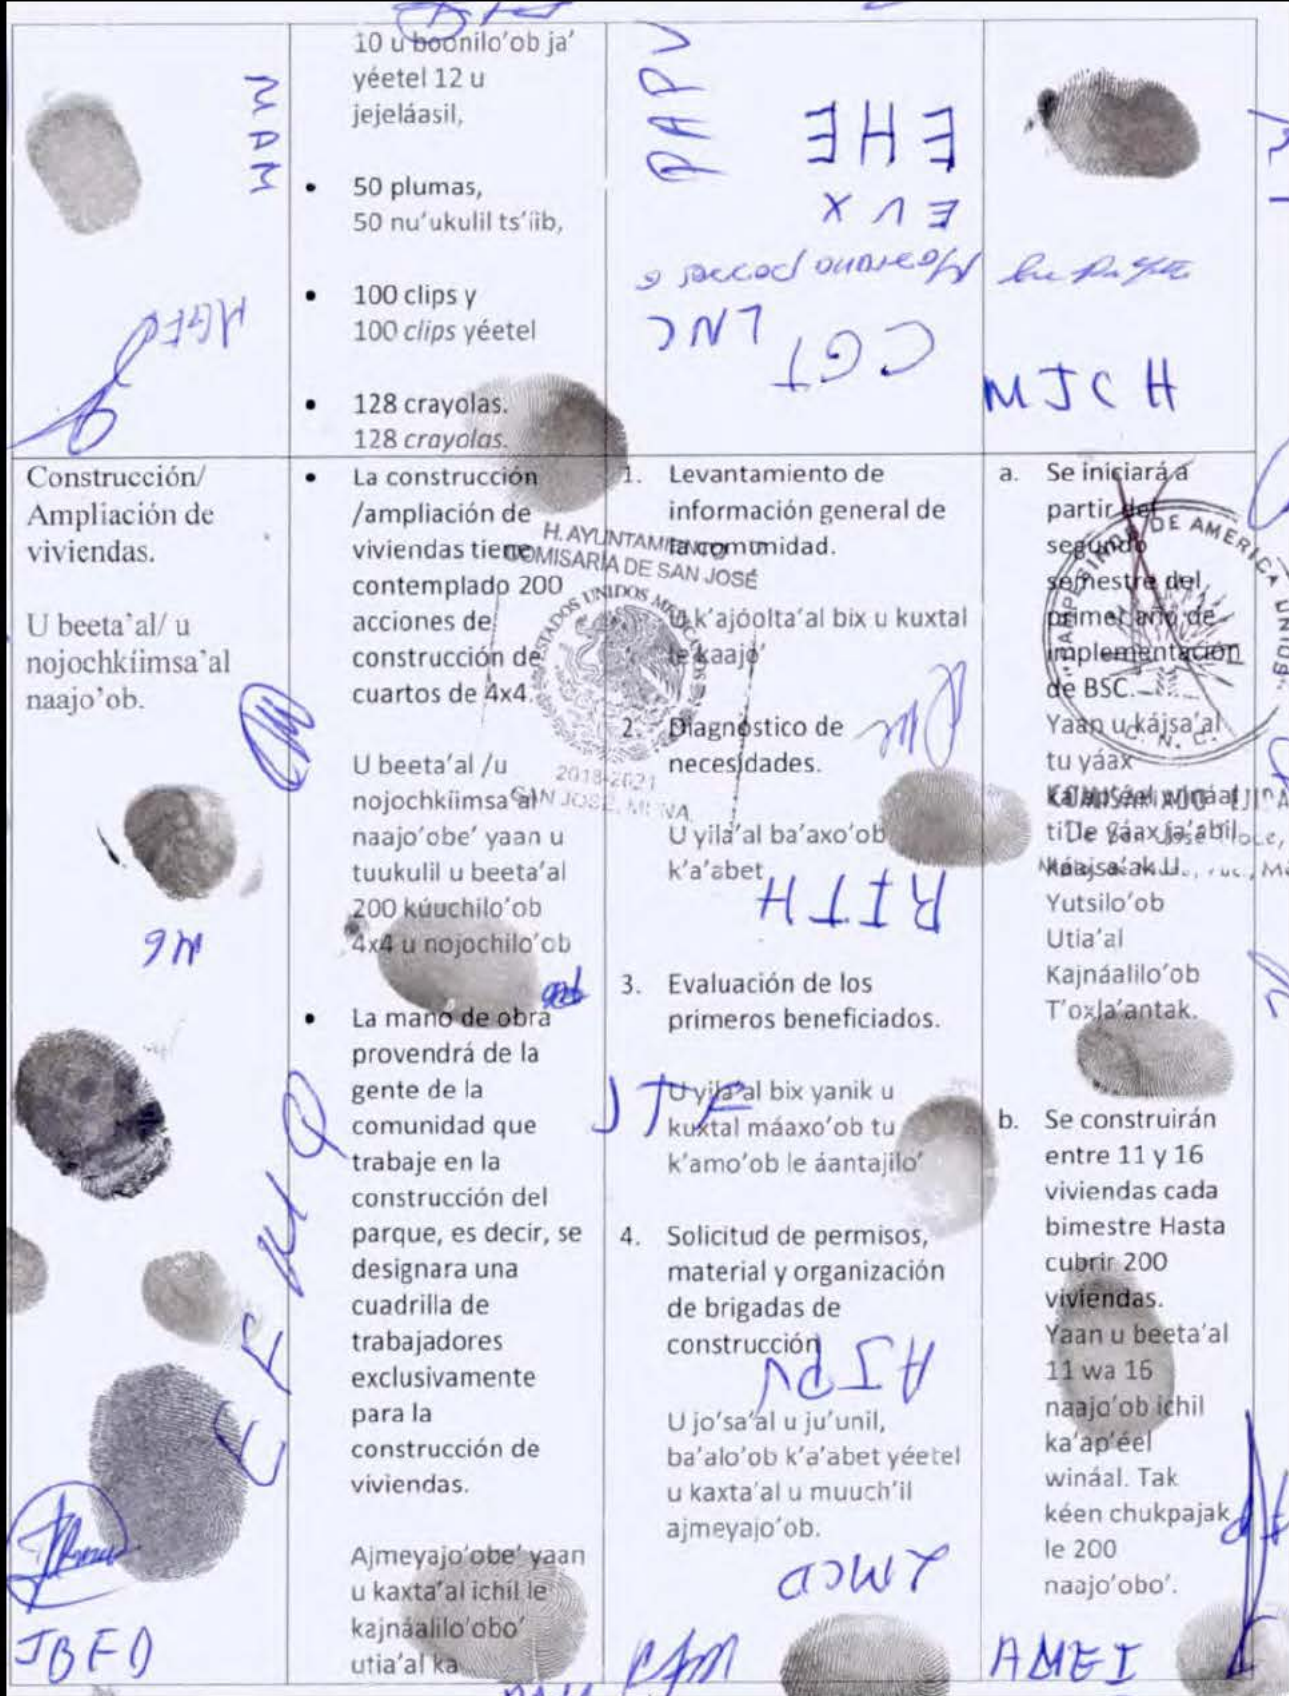 10 u boonilo’ob ja’
yéetel 12 u
jejeláasil,
• 50 plumas,
50 nu’ukulil ts’íib,
• 100 clips y
100 clips yéetel
• 128 crayolas.
128 crayolas.
MAM
MGFO
PAPV
EHE
EVX
LNC
CGT
MJCH
Construcción/
Ampliación de
viviendas.
U beeta’al/ u
nojochkíimsa’al
naajo’ob.
• La construcción
/ampliación de
viviendas tiene
contemplado 200
acciones de
construcción de
cuartos de 4x4.
U beeta’al /u
nojochkíimsa’al
naajo’obe’ yaan u
tuukulil u beeta’al
200 kúuchilo’ob
4x4 u nojochilo’ob
• La mano de obra
provendrá de la
gente de la
comunidad que
trabaje en la
construcción del
parque, es decir, se
designara una
cuadrilla de
trabajadores
exclusivamente
para la
construcción de
viviendas.
Ajmeyajo’obe’ yaan
u kaxta’al ichil le
kajnáalilo’obo’
utia’al ka
1. Levantamiento de
información general de
la comunidad.
U k’ajóolta’al bix u kuxtal
le kaajo’
2. Diagnóstico de
necesidades.
U yila’al ba’axo’ob
k’a’abet
3. Evaluación de los
primeros beneficiados.
U yila’al bix yanik u
kuxtal máaxo’ob tu
k’amo’ob le áantajilo’
4. Solicitud de permisos,
material y organización
de brigadas de
construcción
U jo’sa’al u ju’unil,
ba’alo’ob k’a’abet yéetel
u kaxta’al u muuch’il
ajmeyajo’ob.
a. Se iniciará a
partir del
segundo
semestre del
primer año de
implementación
de BSC.
Yaan u kájsa’al
tu yáax
ka’ap’éel wináal
ti’le yáax ja’abil
Káajsa’ak U
Yutsilo’ob
Utia’al
Kajnáalilo’ob
T’oxla’antak.
b. Se construirán
entre 11 y 16
viviendas cada
bimestre Hasta
cubrir 200
viviendas.
Yaan u beeta’al
11 wa 16
naajo’ob ichil
ka’ap’éel
wináal. Tak
kéen chukpajak
le 200
naajo’obo’.
H. AYUNTAMIENTO
COMISARÍA DE SAN JOSÉ
ESTADOS UNIDOS MEXICANOS
2018-2021
SAN JOSE
C. N. C.
RITH
JTF
AIPV
LMCD
JBFD
AMEI